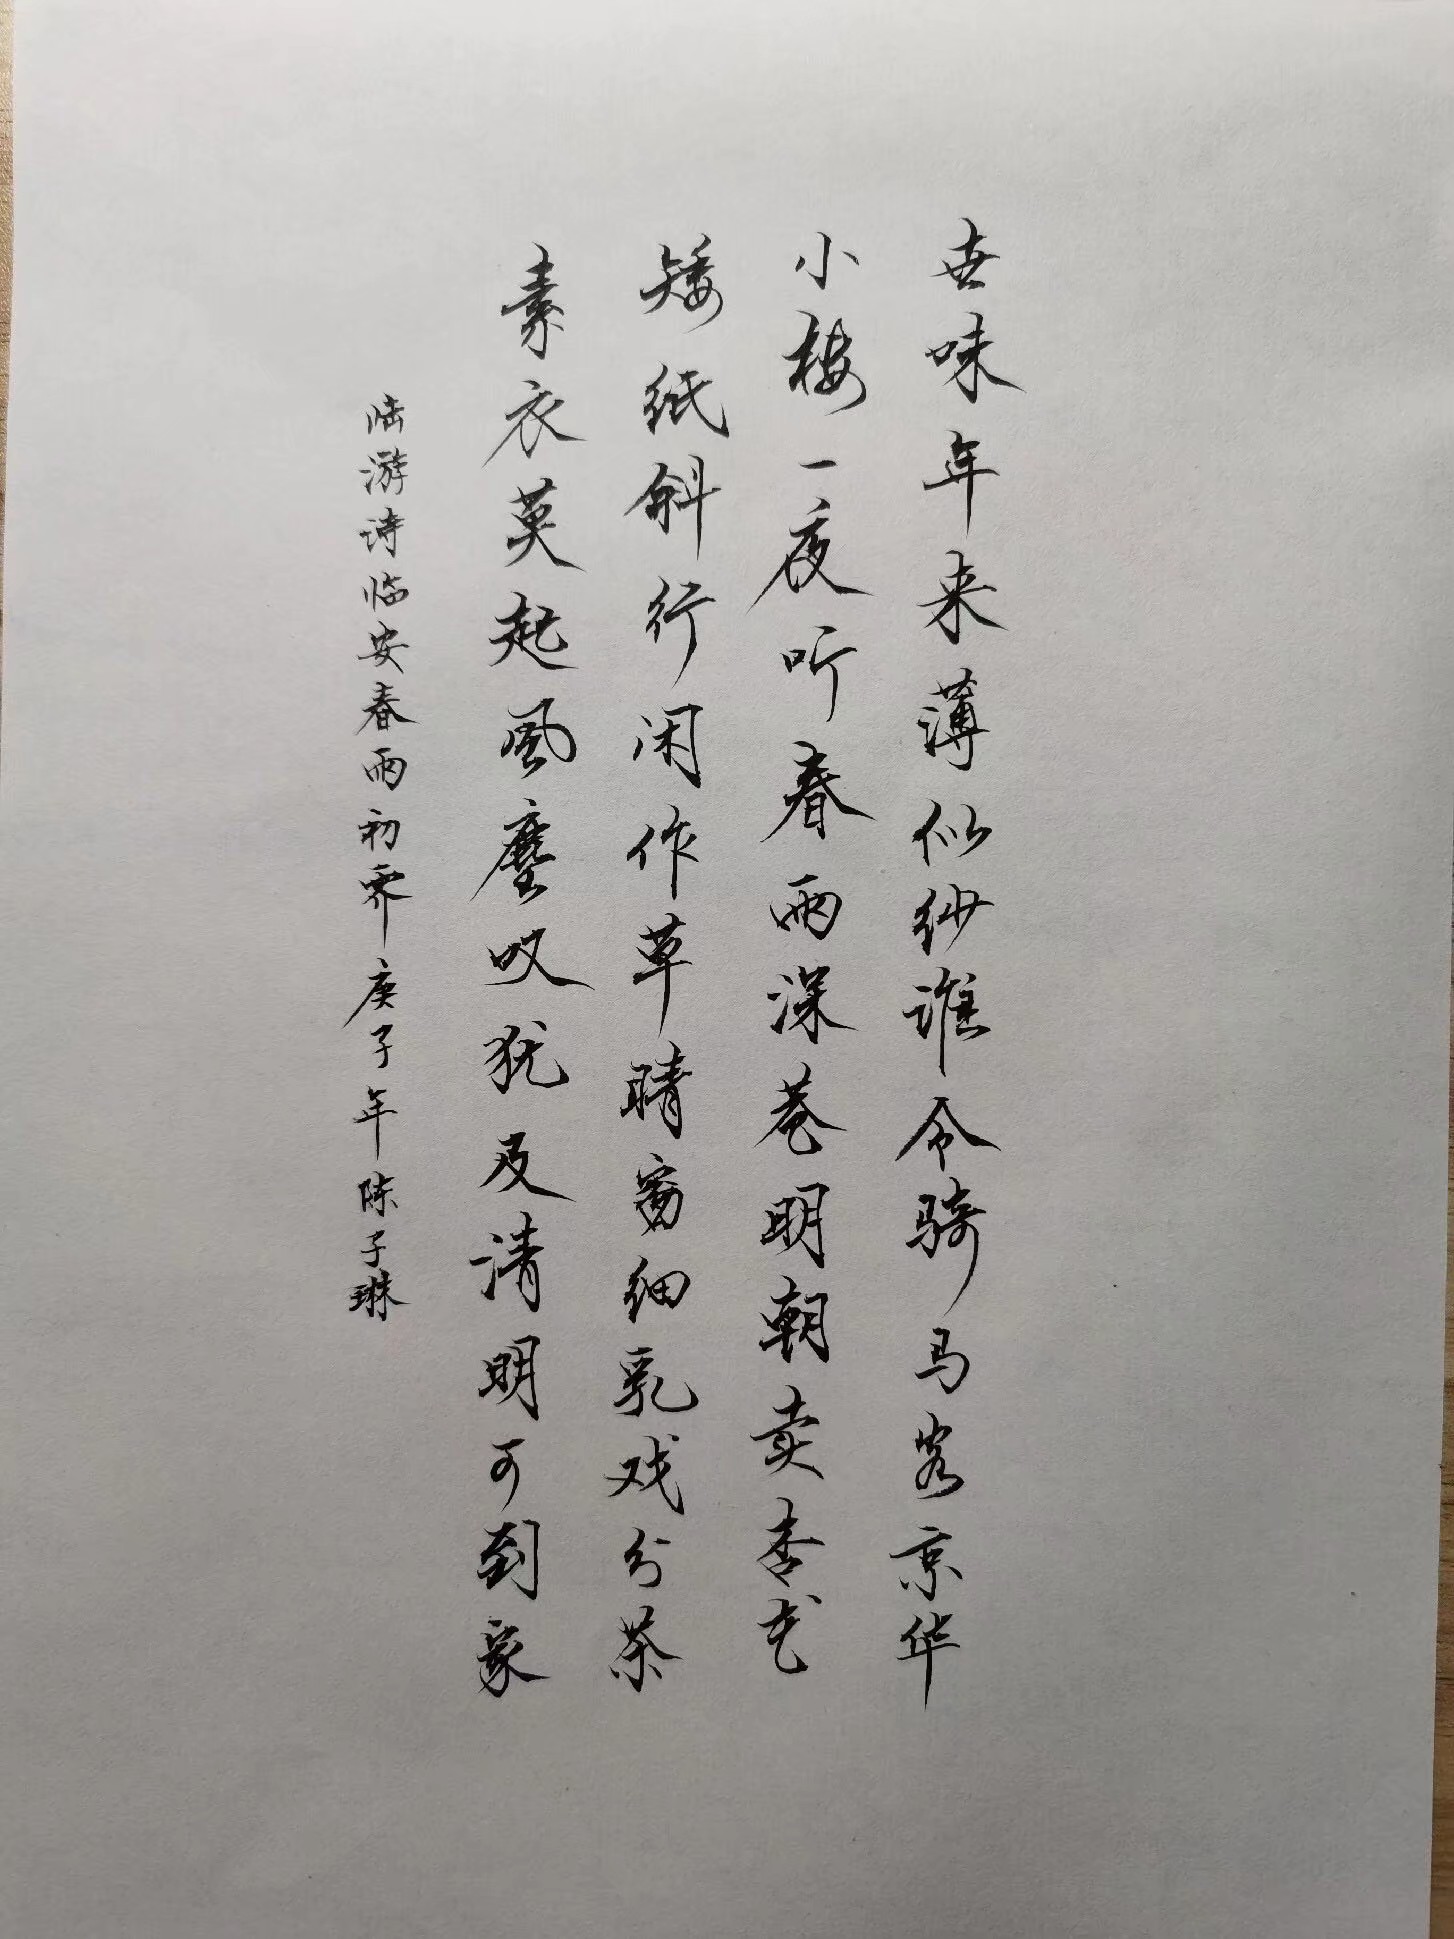 世味年来薄似纱谁令骑马客京华
小楼一夜听春雨深巷明朝卖杏花
矮纸斜行闲作草晴窗细乳戏分茶
素衣莫起风尘叹犹及清明可到家
陆游诗临安春雨初霁庚子年陈子琳